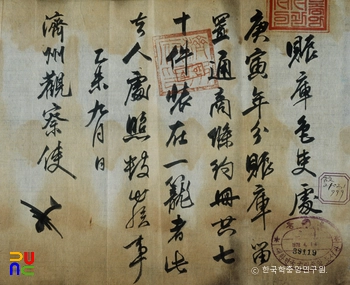 賑庫色吏處
庚寅年分賑庫留
置通商條約冊共七
十件裝在一籠者此
去人處照數出該事
乙未九月日
濟州觀察使
© 한국학중앙연구원
38119